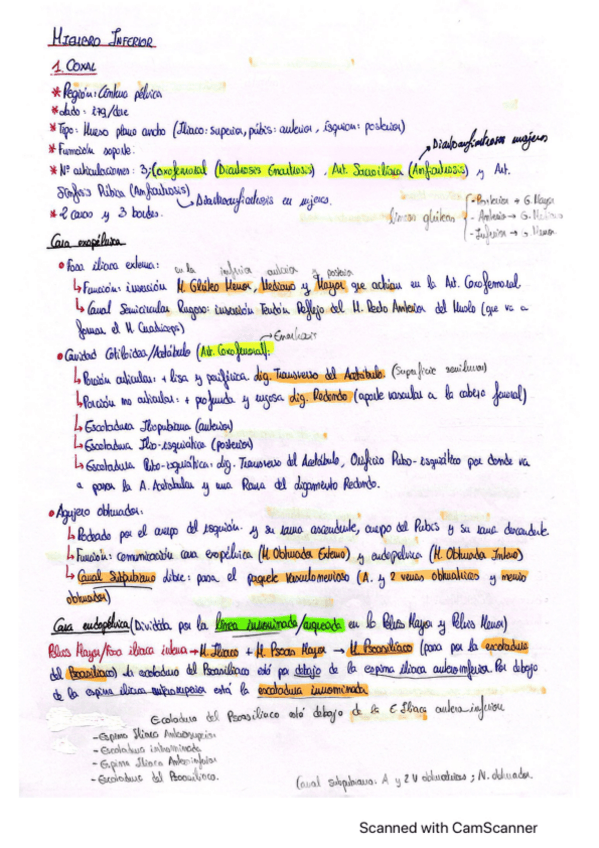 MIEMBRO INFERIOR
1. COXAL
* Región: Cintura pélvica
* Lado: izq/dcho
* Tipo: Hueso plano ancho (Iliaco: superior, púbis: anterior, isquion: posterior)
Diartroanfiartrosis mujeres
* Función soporte.
* Nº articulaciones: 3; (coxofemoral (Diartrosis Enartrosis), Art. Sacroilíaca (Anfiartrosis) y Art.
Sínfisis Púbica (Anfiartrosis)
Diartroanfiartrosis en mujeres.
* 2 caras y 3 bordes.
líneas glúteas
- Posterior → G. Mayor
- Anterior → G. Mediano
- Inferior → G. Menor
Cara exopélvica
• Fosa iliaca externa: en la inferior anterior y posterior
↳ Función: inserción M. Glúteo Menor, Mediano y Mayor que actúan en la Art. Coxofemoral
↳ Canal Semicircular Rugoso: inserción Tendón Reflejo del M. Recto Anterior del Muslo (que va a
formar el M. Cuadríceps)
→ Enartrosis
• Cavidad Cotiloidea/Acetábulo (Art. Coxofemoral):
↳ Porción articular: + lisa y periférica lig. Transverso del Acetábulo. (Superficie semilunar)
↳ Porción no articular: + profunda y rugosa lig. Redondo (aporte vascular a la cabeza femoral)
↳ Escotadura Iliopubiana (anterior)
↳ Escotadura Ilio-isquiática (posterior)
↳ Escotadura Pubo-isquiática: lig. Transverso del Acetábulo, Orificio Pubo-isquiático por donde va
a pasar la A. Acetabular y una Rama del ligamento Redondo.
• Agujero obturador:
↳ Rodeado por el cuerpo del isquión y su rama ascendente, cuerpo del Pubis y su rama descendente
↳ Función: comunicación cara exopélvica (M. Obturador Externo) y endopélvica (M. Obturador Interno)
↳ Canal Subpubiano libre: para el paquete vasculonervioso (A. y 2 venas obturatrices y nervio
obturador)
Cara endopélvica (Dividida por la línea innominada/arqueada en la Pelvis Mayor y Pelvis Menor)
Pelvis Mayor/Fosa iliaca interna → M. Iliaco + M. Psoas Mayor → M. Psoasiliaco (pasa por la escotadura
del Psoasiliaco) La escotadura del Psoasiliaco está por debajo de la espina iliaca anteroinferior. Por debajo
de la espina iliaca anterosuperior está la escotadura innominada
Escotadura del Psoasiliaco está debajo de la E Iliaca antero inferior
- Espina Iliaca Anterosuperior
- Escotadura innominada
- Espina Iliaca Anteroinferior
- Escotadura del Psoasiliaco.
Canal subpubiano: A y 2 V obturatrices; N. obturador.
Scanned with CamScanner